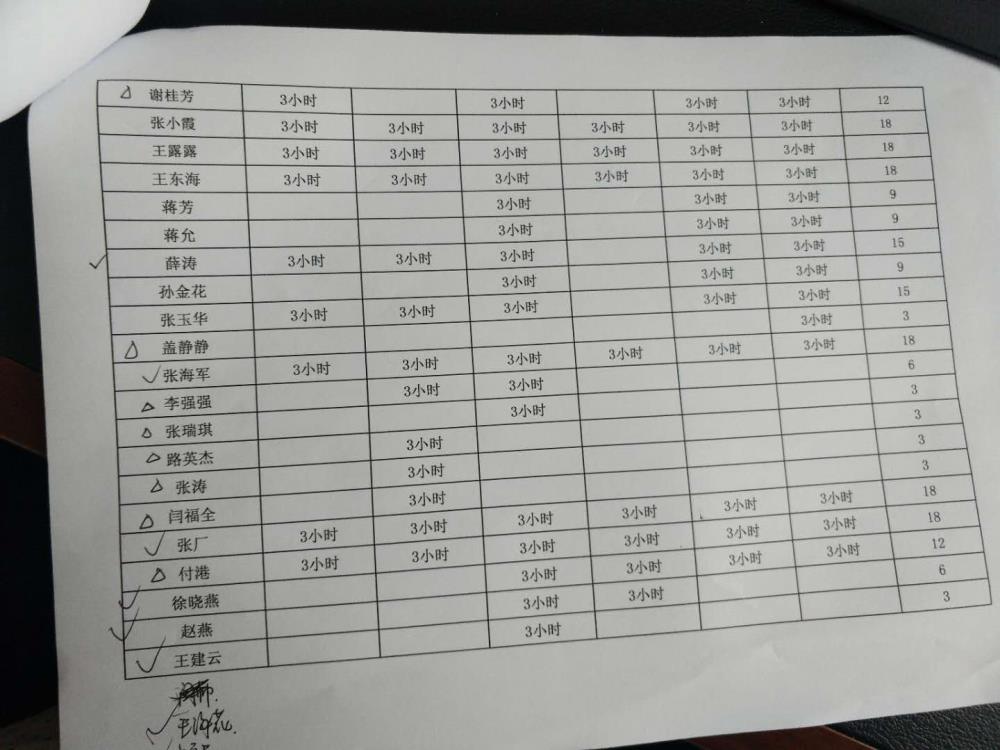 谢桂芳 3小时 3小时 3小时 3小时 12
张小霞 3小时 3小时 3小时 3小时 3小时 3小时 18
王露露 3小时 3小时 3小时 3小时 3小时 3小时 18
王东海 3小时 3小时 3小时 3小时 3小时 3小时 18
蒋芳 3小时 3小时 3小时 9
蒋允 3小时 3小时 3小时 9
薛涛 3小时 3小时 3小时 3小时 3小时 15
孙金花 3小时 3小时 3小时 9
张玉华 3小时 3小时 3小时 3小时 3小时 15
盖静静 3小时 3
张海军 3小时 3小时 3小时 3小时 3小时 3小时 18
李强强 3小时 3小时 6
张瑞琪 3小时 3
路英杰 3小时 3
张涛 3小时 3
闫福全 3小时 3
张厂 3小时 3小时 3小时 3小时 3小时 3小时 18
付港 3小时 3小时 3小时 3小时 3小时 3小时 18
徐晓燕 3小时 3小时 3小时 3小时 12
赵燕 3小时 3小时 6
王建云 3小时 3